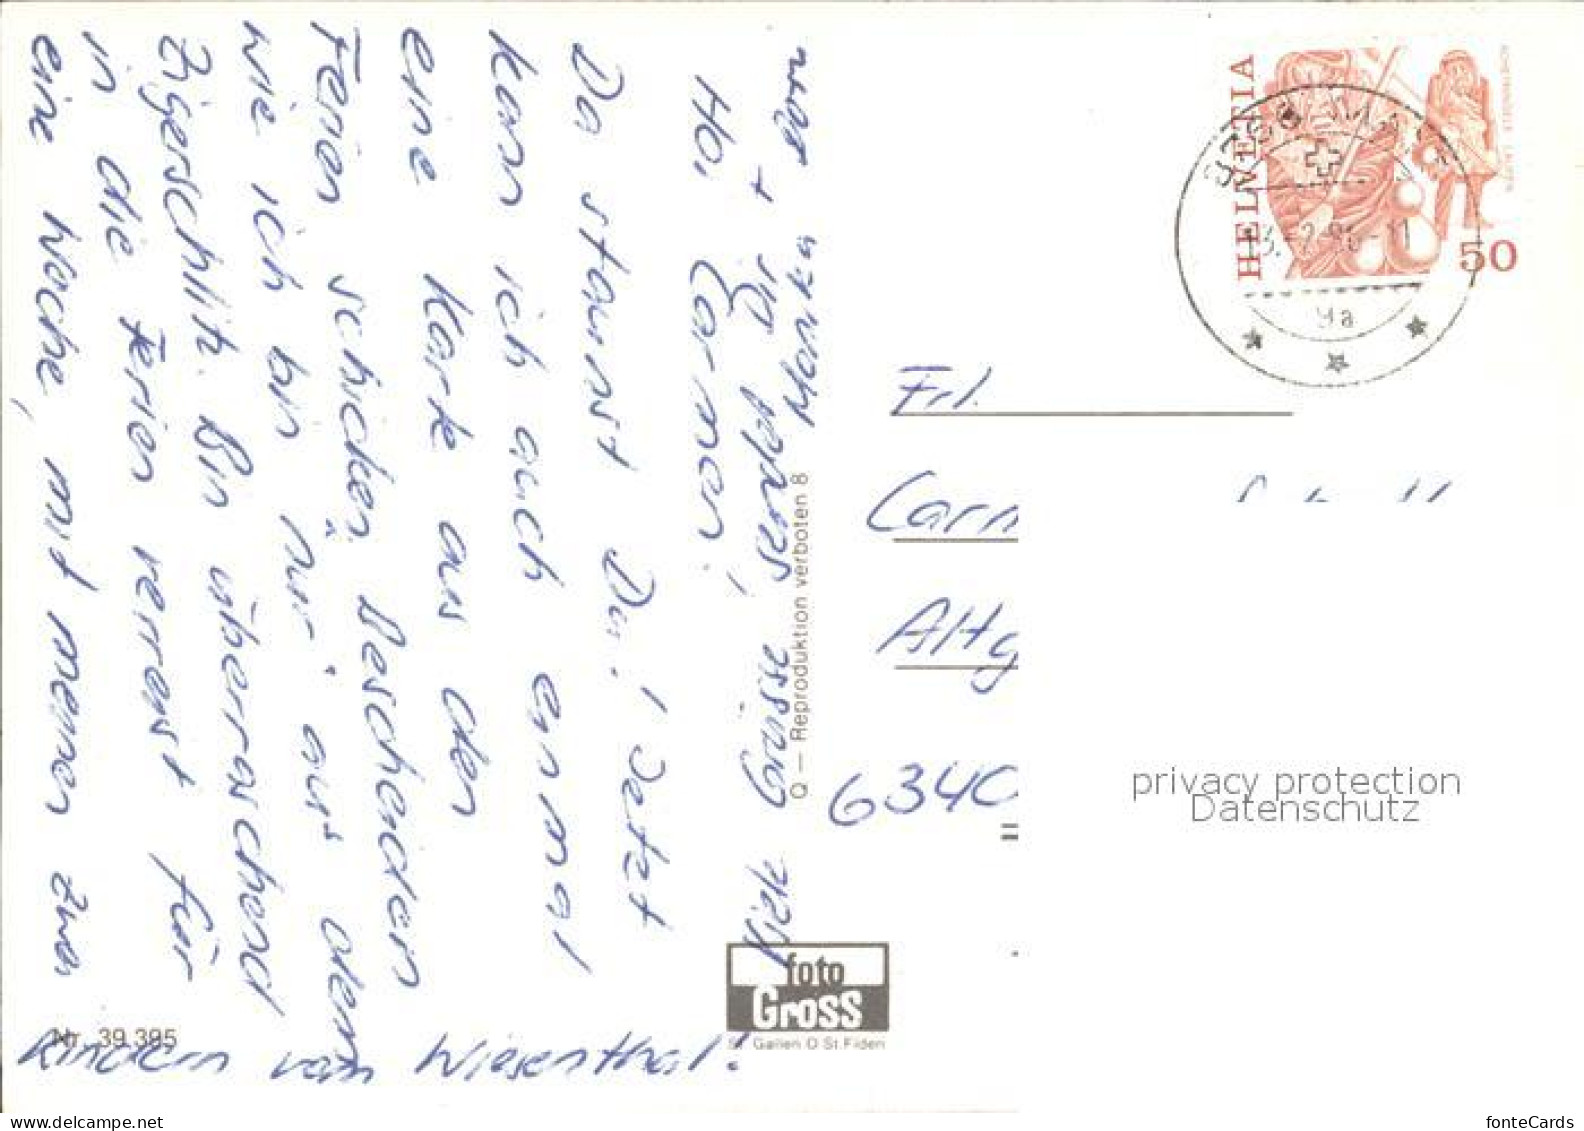 Hoi Carmen!
Da staunst Du! Jetzt
kann ich auch einmal
eine Karte aus den
Ferien schicken. Bescheiden
wie ich bin nur aus dem
Zigerschlitz. Bin überraschend
in die Ferien verreist für
eine Woche, mit meinen zwei
Kindern vom Wiesenthal!
Viele Grüsse sendet Dir
+ von
Monika
Q — Reproduktion verboten 8
foto
Gross
St. Gallen O St. Fiden
Nr. 39 395
HELVETIA
50
Frl.
Carm
Altg
6340
privacy protection
Datenschutz
fonteCards